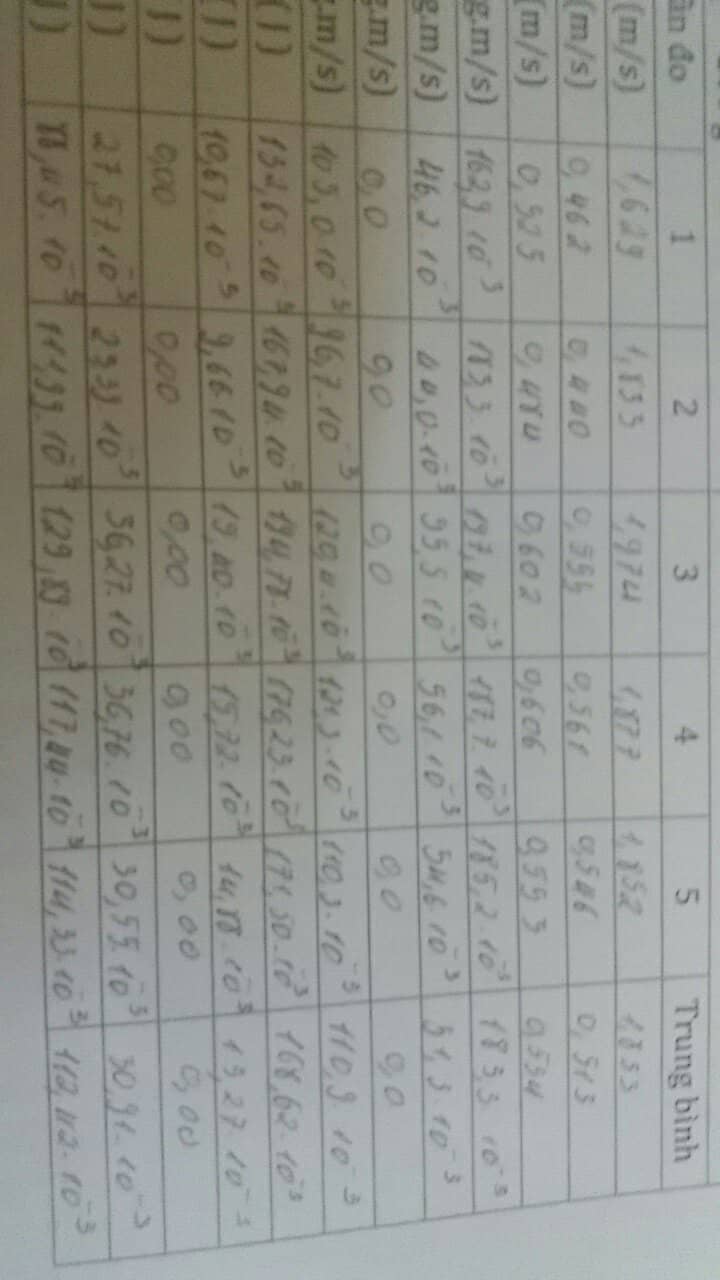 ần đo 1 2 3 4 5 Trung bình
(m/s) 1,629 1,833 1,974 1,877 1,852 1,833
(m/s) 0,462 0,440 0,555 0,561 0,546 0,513
(m/s) 0,525 0,484 0,602 0,606 0,553 0,554
g.m/s) 162,9.10⁻³ 183,3.10⁻³ 197,4.10⁻³ 187,7.10⁻³ 185,2.10⁻³ 183,3 10⁻³
g.m/s) 46,2.10⁻³ 44,0.10⁻³ 55,5 10⁻³ 56,1 10⁻³ 54,6 10⁻³ 51,3.10⁻³
g.m/s) 0,0 0,0 0,0 0,0 0,0 0,0
.m/s) 105,0.10⁻³ 96,7.10⁻³ 120,4.10⁻³ 121,3.10⁻³ 110,3.10⁻³ 110,9.10⁻³
(J) 132,65.10⁻³ 167,94.10⁻³ 194,78.10⁻³ 176,23.10⁻³ 171,50.10⁻³ 168,62.10⁻³
(J) 10,67.10⁻³ 9,66.10⁻³ 15,40.10⁻³ 15,72.10⁻³ 14,88.10⁻³ 13,27.10⁻³
J) 0,00 0,00 0,00 0,00 0,00 0,00
J) 27,57.10⁻³ 23,39.10⁻³ 36,27.10⁻³ 36,76.10⁻³ 30,55.10⁻³ 30,91.10⁻³
J) 88,45.10⁻³ 111,99.10⁻³ 129,89.10⁻³ 117,44.10⁻³ 114,33.10⁻³ 112,42.10⁻³